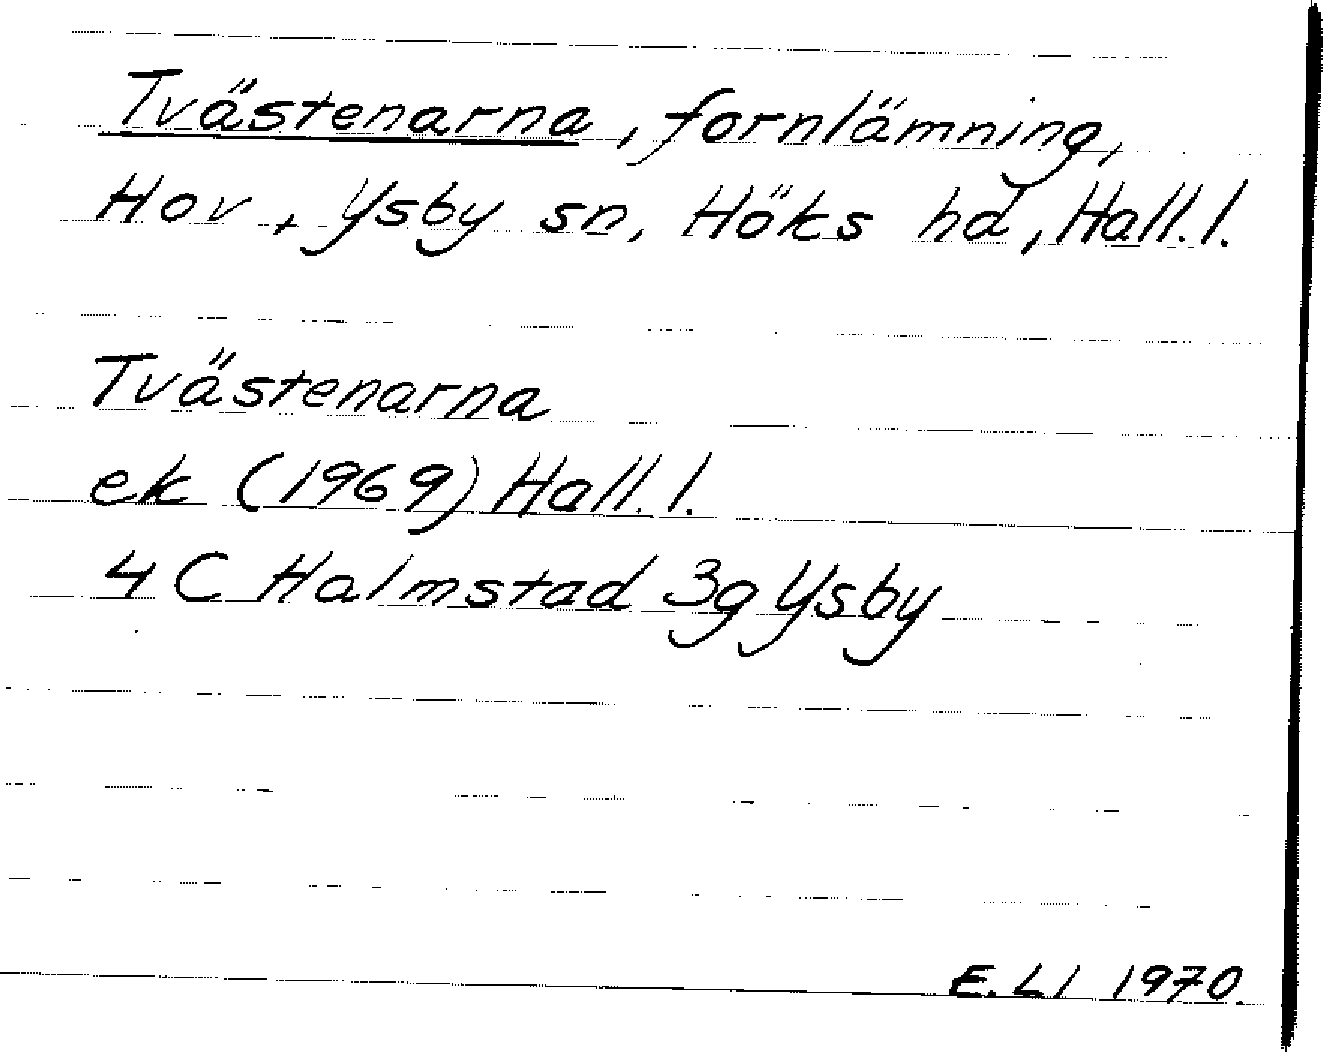 Tvästenarna, fornlämning,
Hov, Ysby sn, Höks hd, Hall. l.
Tvästenarna
ek (1969) Hall. l.
4 C Halmstad 3g Ysby
E. Ll 1970